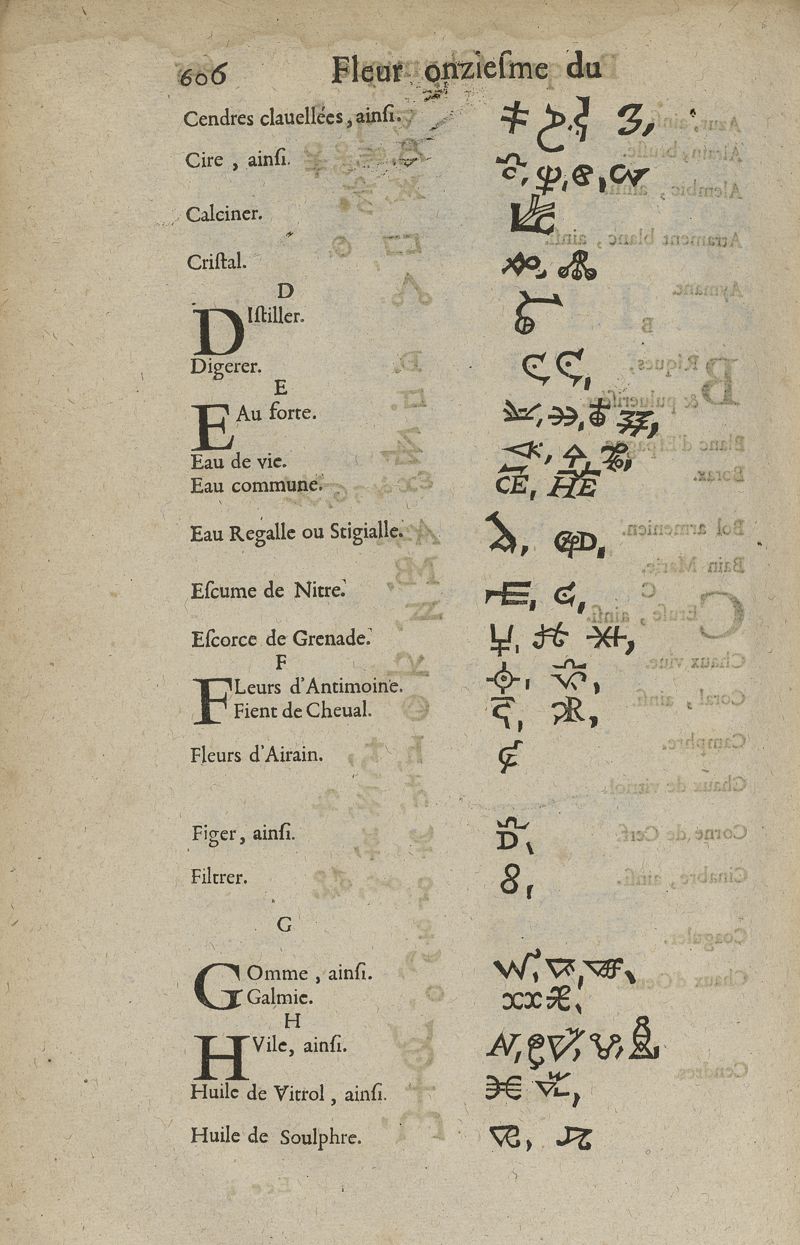 606 Fleur onziesme du
Cendres clauellées, ainsi.
Cire, ainsi.
Calciner.
Cristal.
D
DIstiller.
Digerer.
E
EAu forte.
Eau de vie.
Eau commune.
Eau Regalle ou Stigialle.
Escume de Nitre.
Escorce de Grenade.
F
FLeurs d'Antimoine.
Fient de Cheual.
Fleurs d'Airain.
Figer, ainsi.
Filtrer.
G
GOmme, ainsi.
Galmie.
H
HVile, ainsi.
Huile de Vitrol, ainsi.
Huile de Soulphre.